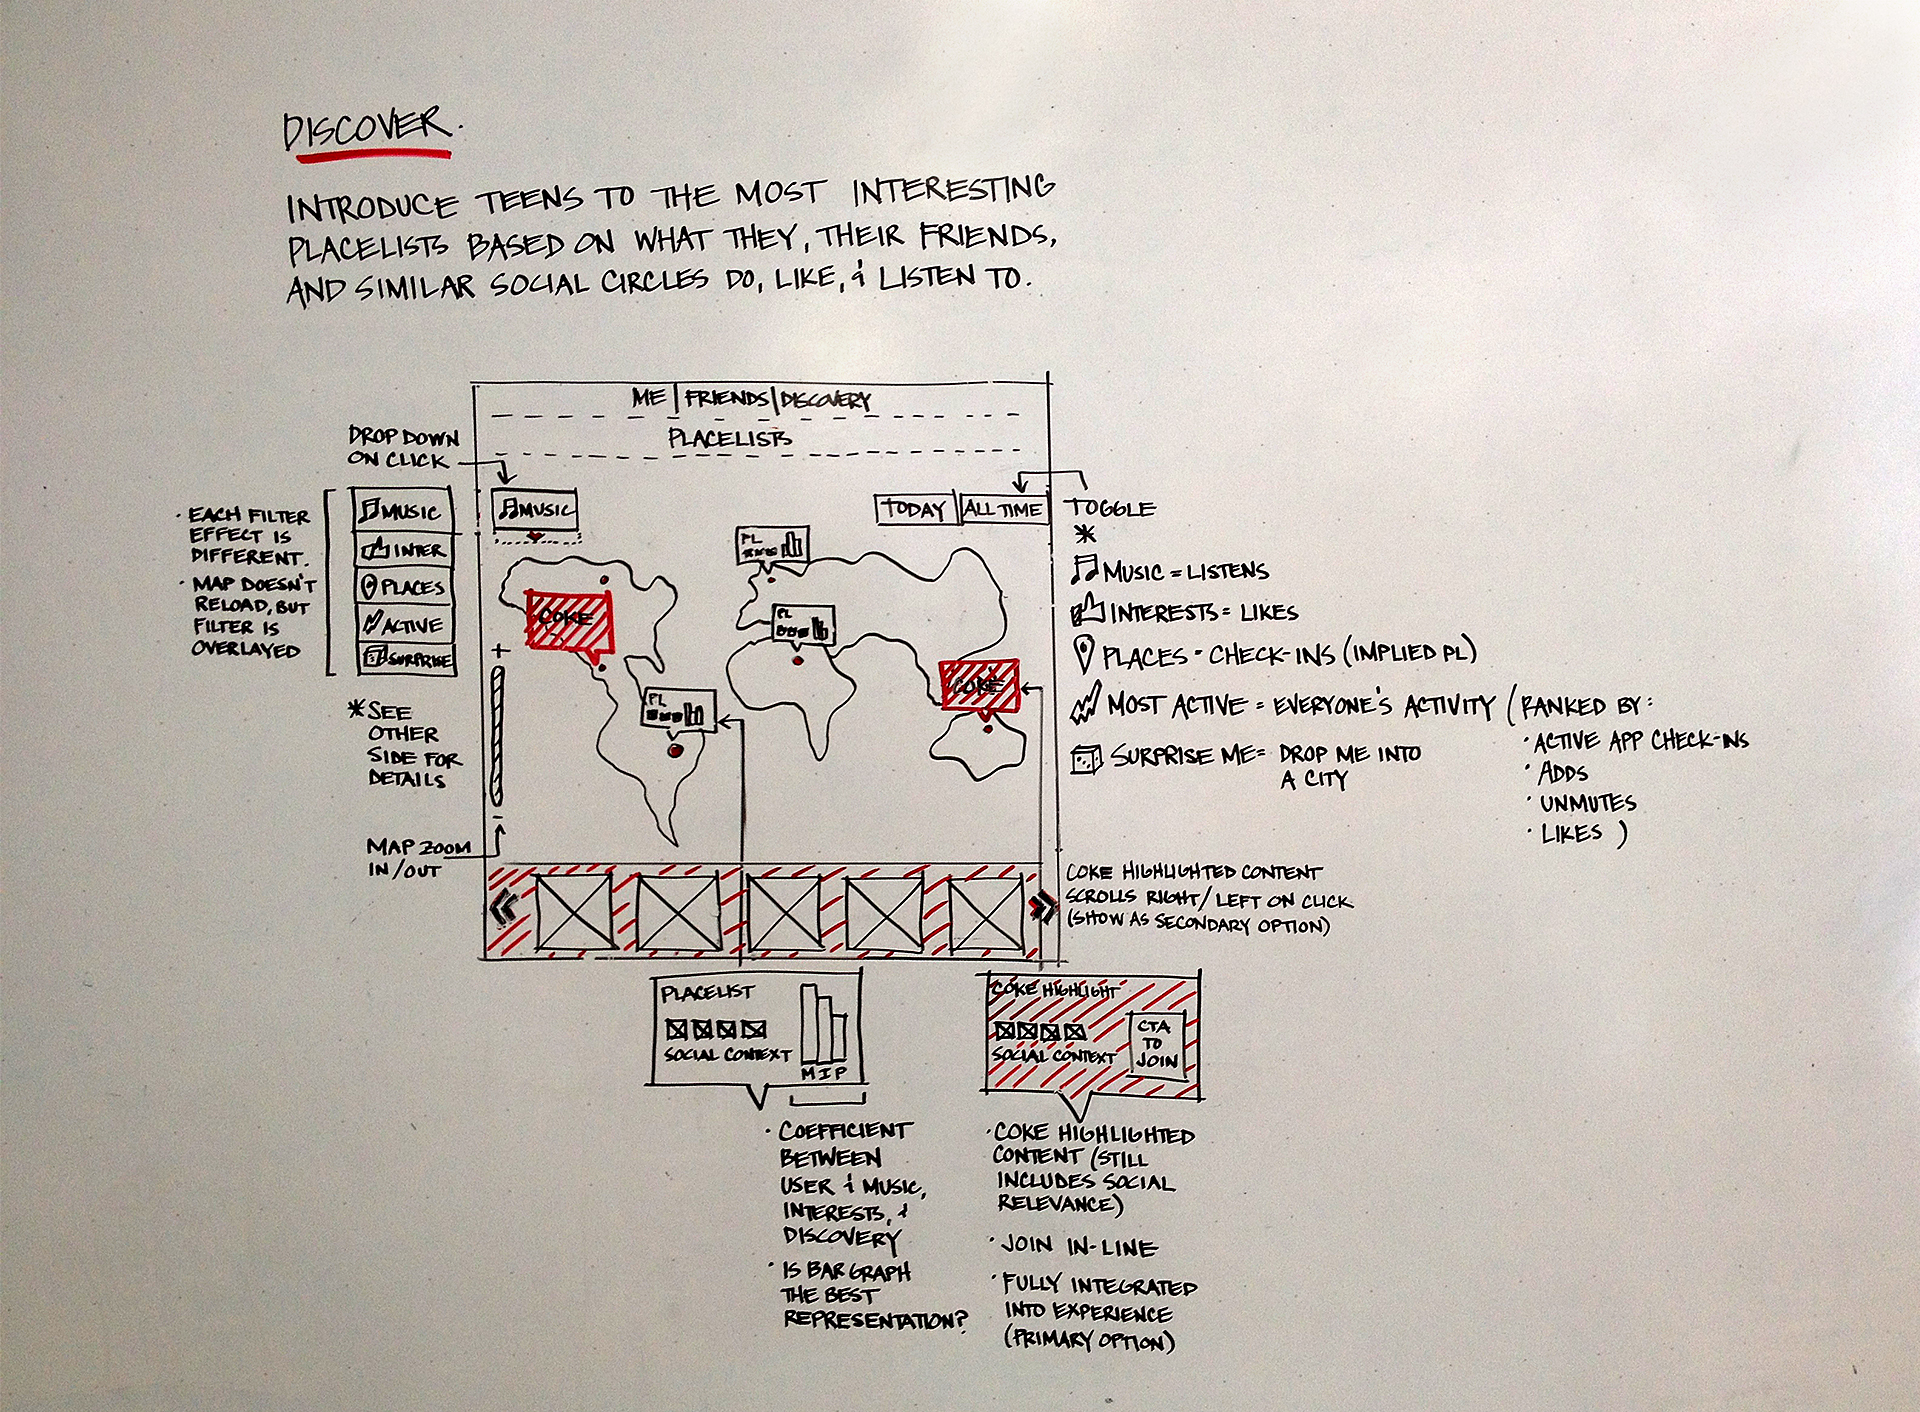 DISCOVER.
INTRODUCE TEENS TO THE MOST INTERESTING
PLACELISTS BASED ON WHAT THEY, THEIR FRIENDS,
AND SIMILAR SOCIAL CIRCLES DO, LIKE, & LISTEN TO.
ME | FRIENDS | DISCOVERY
PLACELISTS
DROP DOWN
ON CLICK
· EACH FILTER
EFFECT IS
DIFFERENT.
· MAP DOESN'T
RELOAD, BUT
FILTER IS
OVERLAYED
MUSIC
INTER
PLACES
ACTIVE
SURPRISE
*SEE
OTHER
SIDE FOR
DETAILS
MAP ZOOM
IN/OUT
+
-
MUSIC
TODAY
ALL TIME
PL
PL
PL
COKE
COKE
TOGGLE
*
MUSIC = LISTENS
INTERESTS = LIKES
PLACES - CHECK-INS (IMPLIED PL)
MOST ACTIVE = EVERYONE'S ACTIVITY (RANKED BY:
· ACTIVE APP CHECK-INS
· ADDS
· UNMUTES
· LIKES )
SURPRISE ME = DROP ME INTO
A CITY
COKE HIGHLIGHTED CONTENT
SCROLLS RIGHT/LEFT ON CLICK
(SHOW AS SECONDARY OPTION)
PLACELIST
SOCIAL CONTEXT
M I P
· COEFFICIENT
BETWEEN
USER & MUSIC,
INTERESTS, &
DISCOVERY
· IS BAR GRAPH
THE BEST
REPRESENTATION?
COKE HIGHLIGHT
SOCIAL CONTEXT
CTA
TO
JOIN
· COKE HIGHLIGHTED
CONTENT (STILL
INCLUDES SOCIAL
RELEVANCE)
· JOIN IN-LINE
· FULLY INTEGRATED
INTO EXPERIENCE
(PRIMARY OPTION)